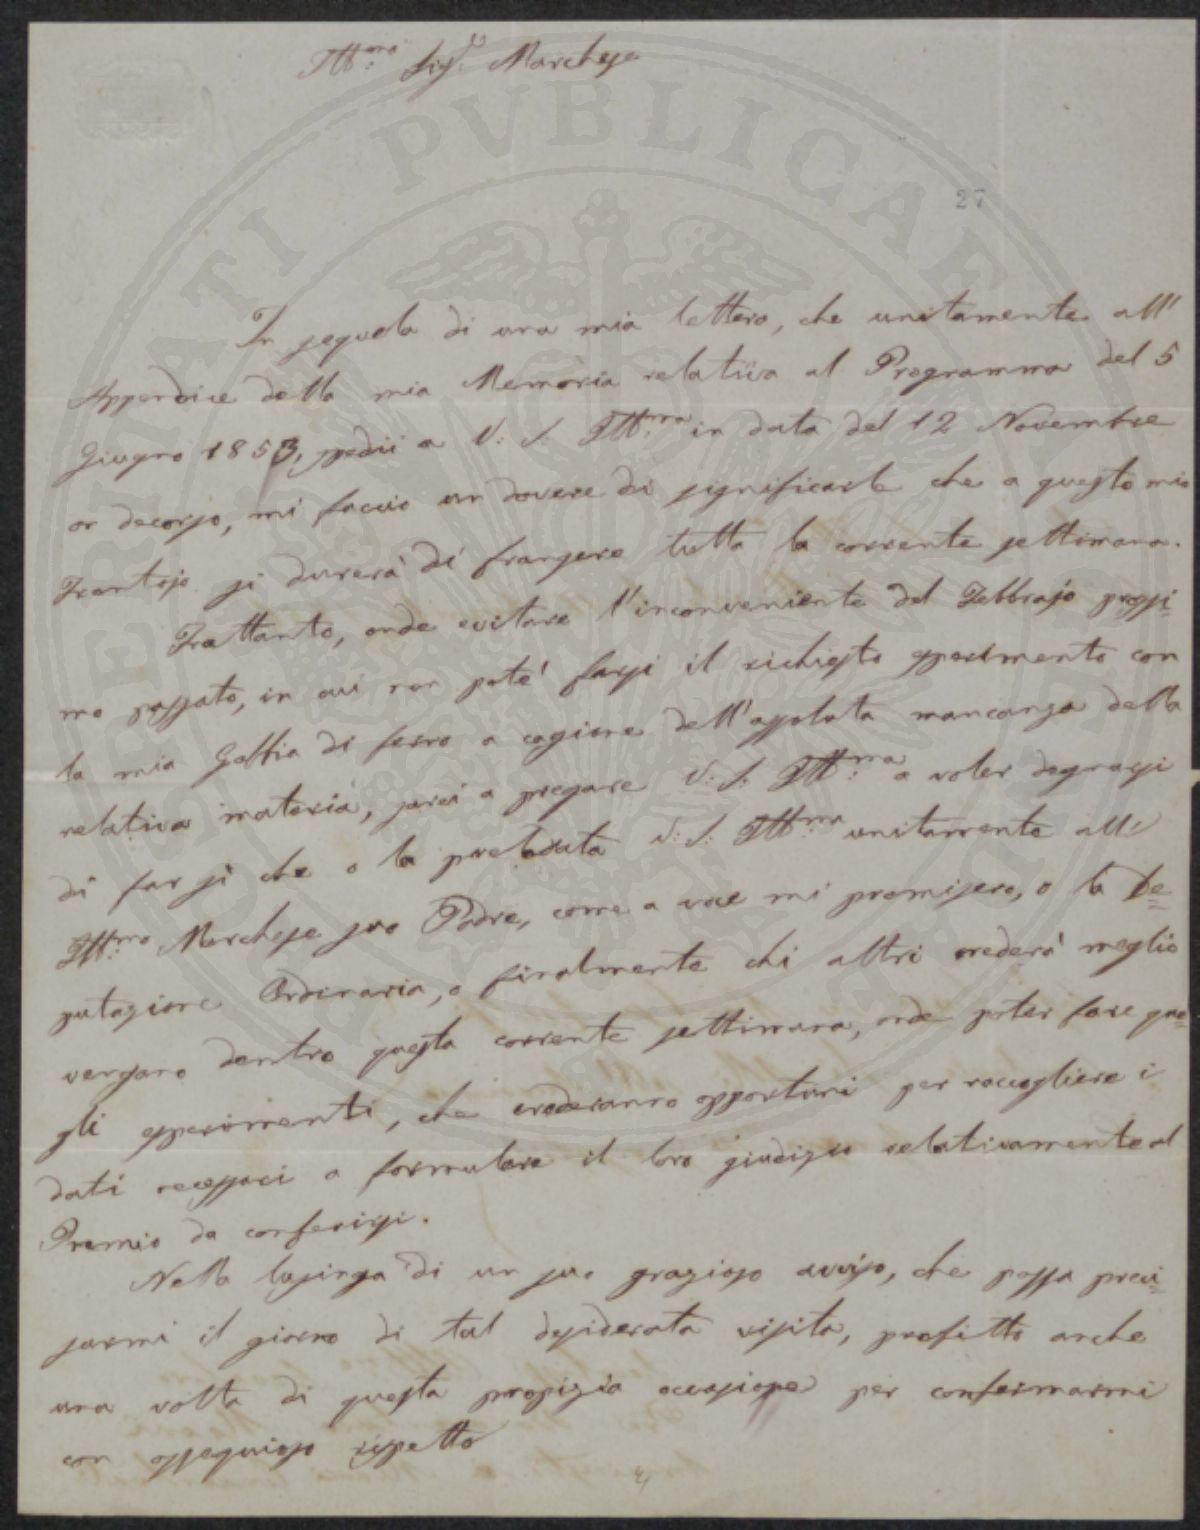 Ill:mo Sig.r Marchese
27
In seguela di una mia lettera, che unitamente all'
Appendice della mia Memoria relativa al Programma del 5
Giugno 1853, spedii a V: S: Ill:ma in data del 12 Novembre
or decorso, mi faccio un dovere di significarle che a questo mio
Frantojo si durerà di frangere tutta la corrente settimana.
Frattanto, onde evitare l'inconveniente del Febbrajo prossi=
mo passato, in cui non poté farsi il richiesto sperimento con
la mia Gabbia di ferro a cagione dell'assoluta mancanza della
relativa materia, sarei a pregare V: S: Ill:ma a voler degnarsi
di far sì che o la prelodata V: S: Ill:ma unitamente all'
Ill:mo Marchese suo Padre, come a voce mi promisero, o la De=
putazione Ordinaria, o finalmente chi altri crederà meglio
vengano dentro questa corrente settimana, onde poter fare que=
gli sperimenti, che crederanno opportuni per raccogliere i
dati necessari a formulare il loro giudizio relativamente al
Premio da conferirsi.
Nella lusinga di un suo grazioso avviso, che possa preci=
sarmi il giorno di tal desiderata visita, profitto anche
una volta di questa propizia occasione per confermarmi
con ossequioso rispetto
PERITI PVBLICAE